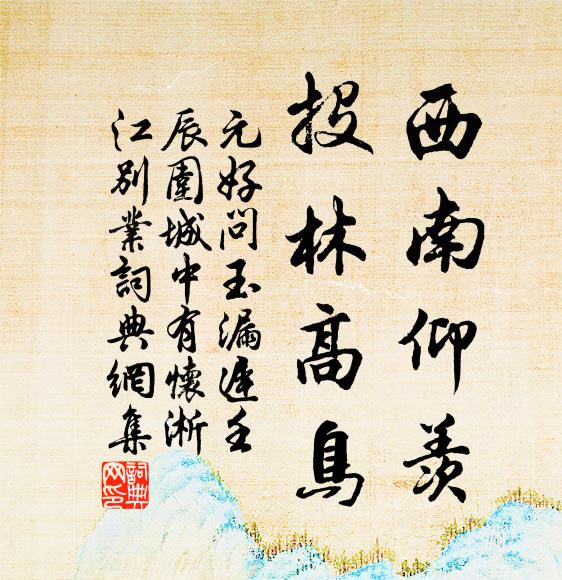 西南仰羨
投林高鳥
元好問玉漏遲壬
辰圍城中有懷淅
江別業詞典網集
詞典網印